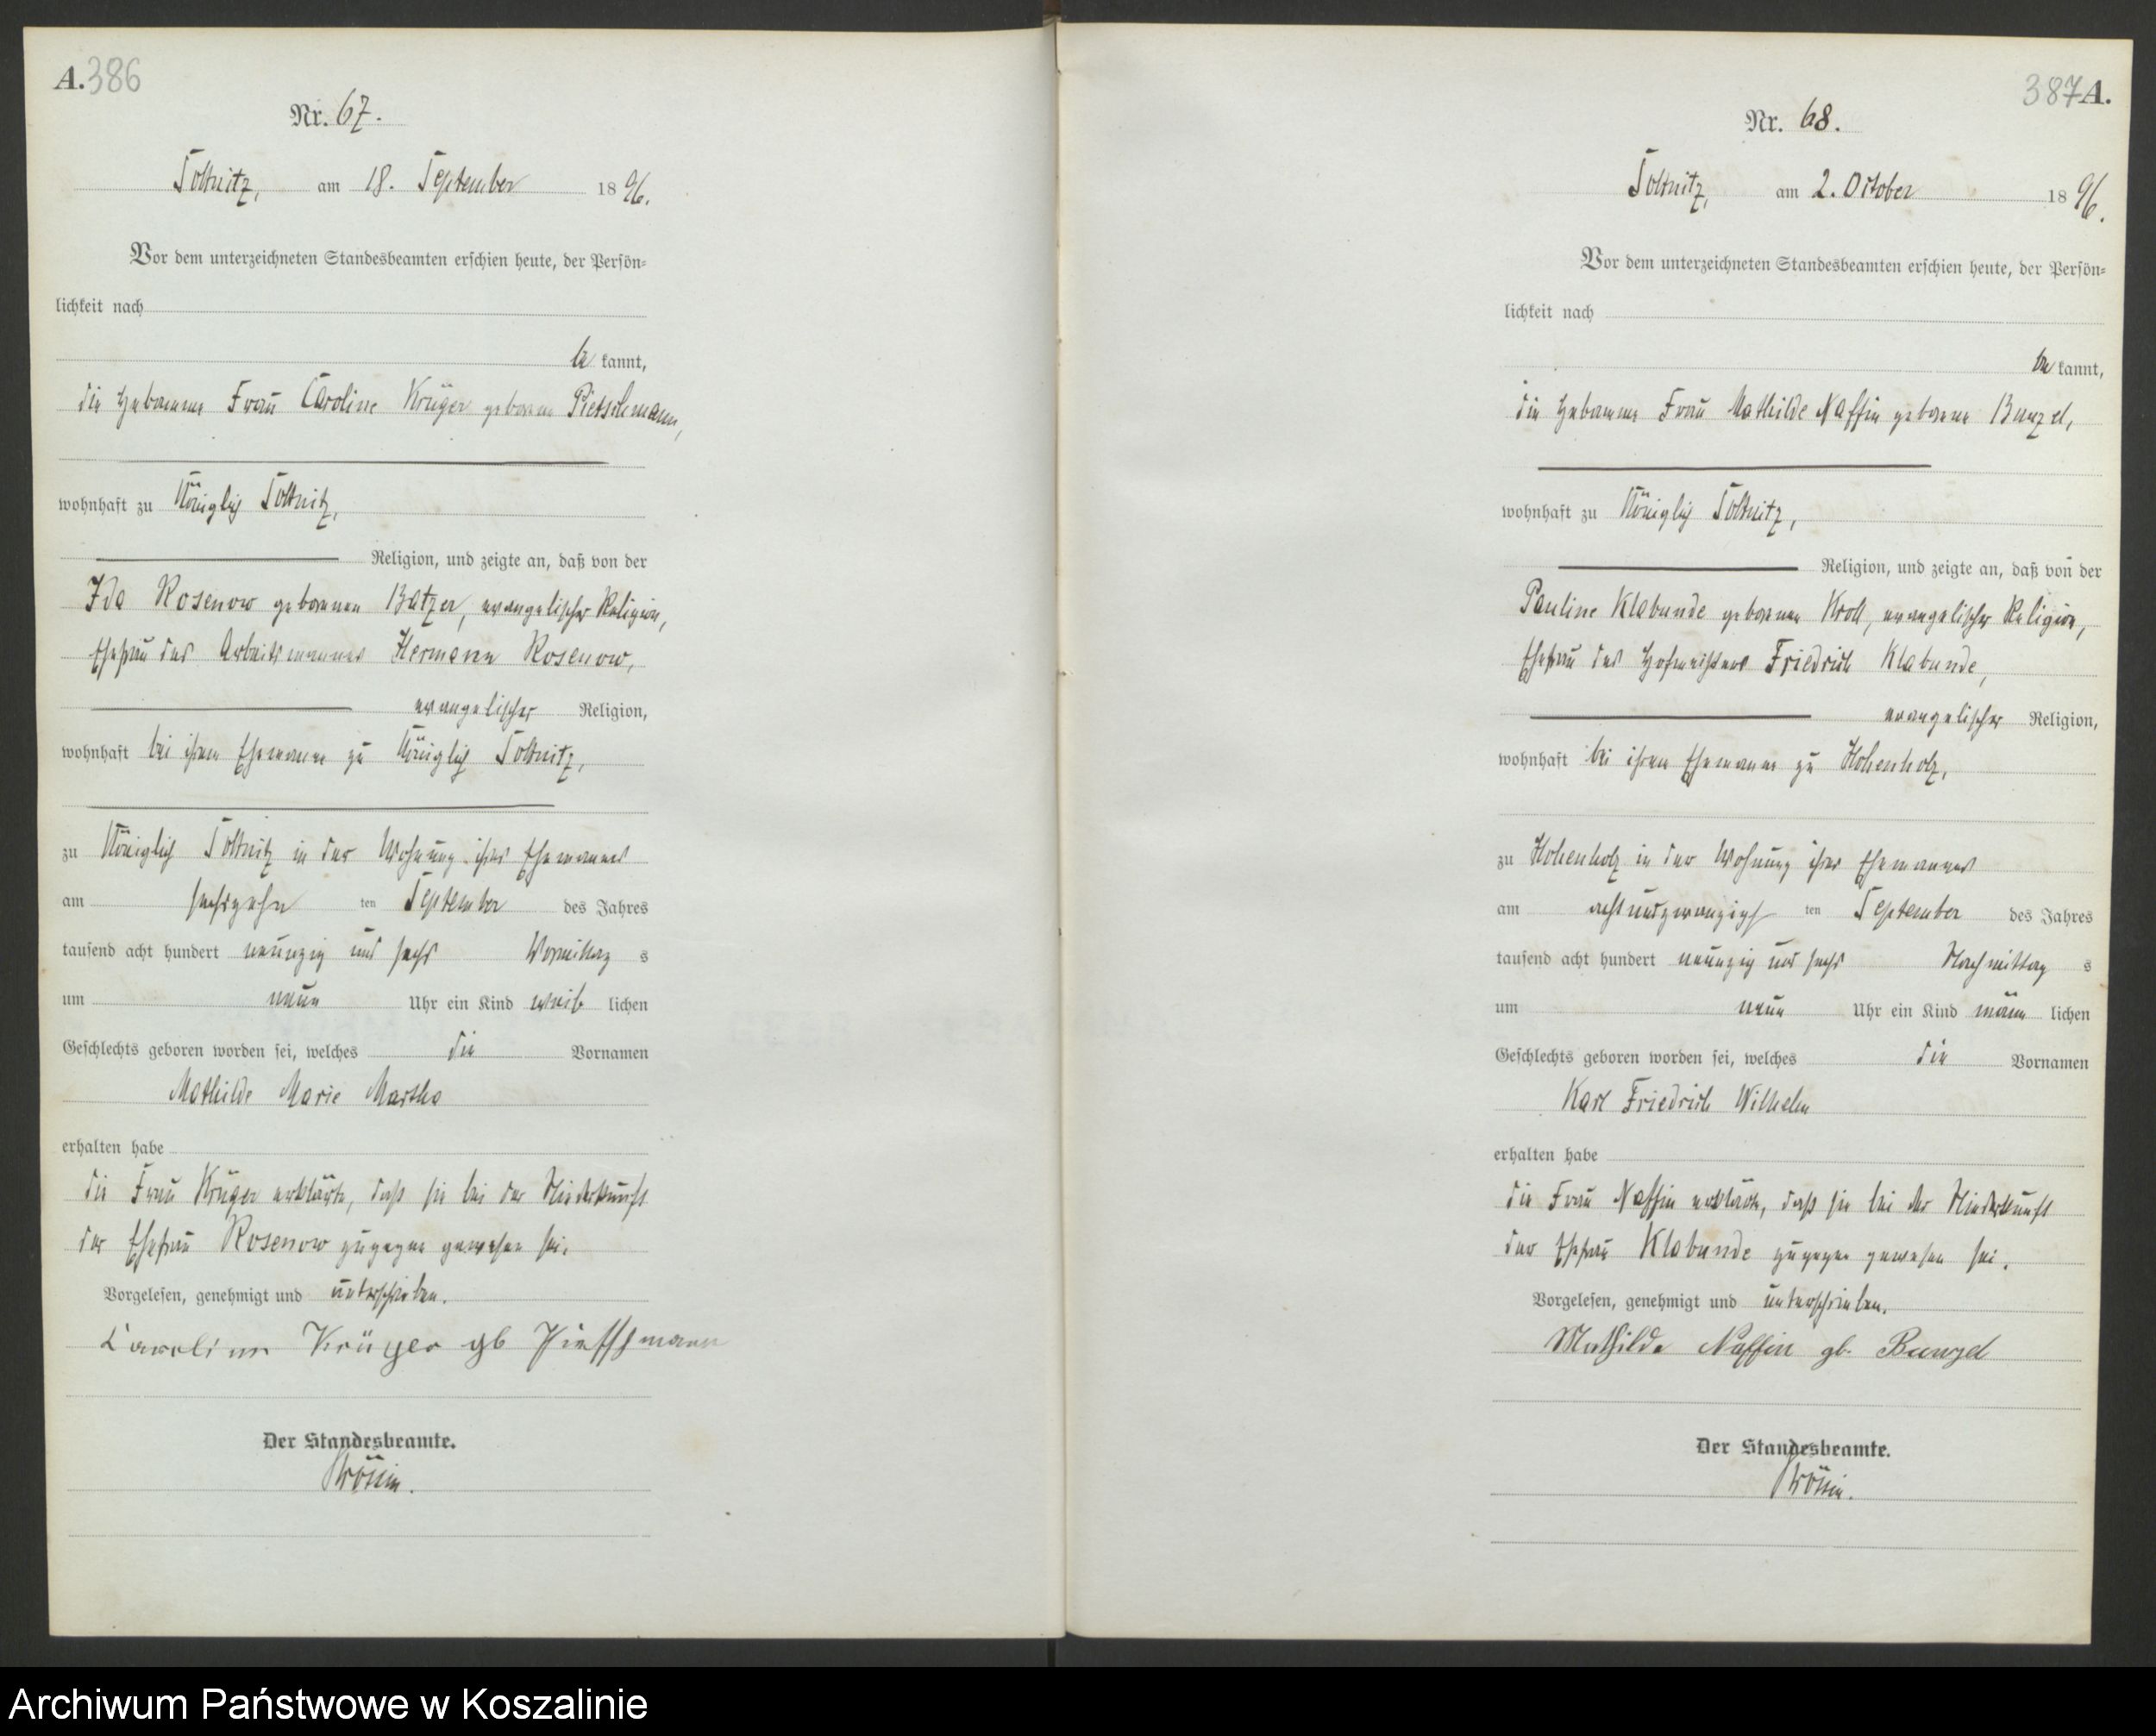 A. 386
Nr. 67.
Soltnitz, am 18. September 1896.
Vor dem unterzeichneten Standesbeamten erschien heute, der Persön-
lichkeit nach
be kannt,
die Hebamme Frau Caroline Krüger geborene Pietschmann,
wohnhaft zu Königlich Soltnitz,
Religion, und zeigte an, daß von der
Ida Rosenow geborenen Batzer, evangelischer Religion,
Ehefrau des Arbeitsmannes Hermann Rosenow,
evangelischer Religion,
wohnhaft bei ihrem Ehemanne zu Königlich Soltnitz,
zu Königlich Soltnitz in der Wohnung ihres Ehemannes
am sechszehn ten September des Jahres
tausend acht hundert neunzig und sechs Vormittag s
um neun Uhr ein Kind weib lichen
Geschlechts geboren worden sei, welches die Vornamen
Mathilde Marie Martha
erhalten habe
die Frau Krüger erklärte, daß sie bei der Niederkunft
der Ehefrau Rosenow zugegen gewesen sei.
Vorgelesen, genehmigt und unterschrieben.
Caroline Krüger gb Pietschmann
Der Standesbeamte.
387 A.
Nr. 68.
Soltnitz, am 2. October 1896.
Vor dem unterzeichneten Standesbeamten erschien heute, der Persön-
lichkeit nach
be kannt,
die Hebamme Frau Mathilde Naffin geborene Bunzel,
wohnhaft zu Königlich Soltnitz,
Religion, und zeigte an, daß von der
Pauline Klabunde geborenen Kroll, evangelischer Religion,
Ehefrau des Hofmeisters Friedrich Klabunde,
evangelischer Religion,
wohnhaft bei ihrem Ehemanne zu Hohenholz,
zu Hohenholz in der Wohnung ihres Ehemannes
am achtundzwanzigst ten September des Jahres
tausend acht hundert neunzig und sechs Nachmittag s
um neun Uhr ein Kind männ lichen
Geschlechts geboren worden sei, welches die Vornamen
Karl Friedrich Wilhelm
erhalten habe
die Frau Naffin erklärte, daß sie bei der Niederkunft
der Ehefrau Klabunde zugegen gewesen sei.
Vorgelesen, genehmigt und unterschrieben.
Mathilde Naffin gb. Bunzel
Der Standesbeamte.
Archiwum Państwowe w Koszalinie